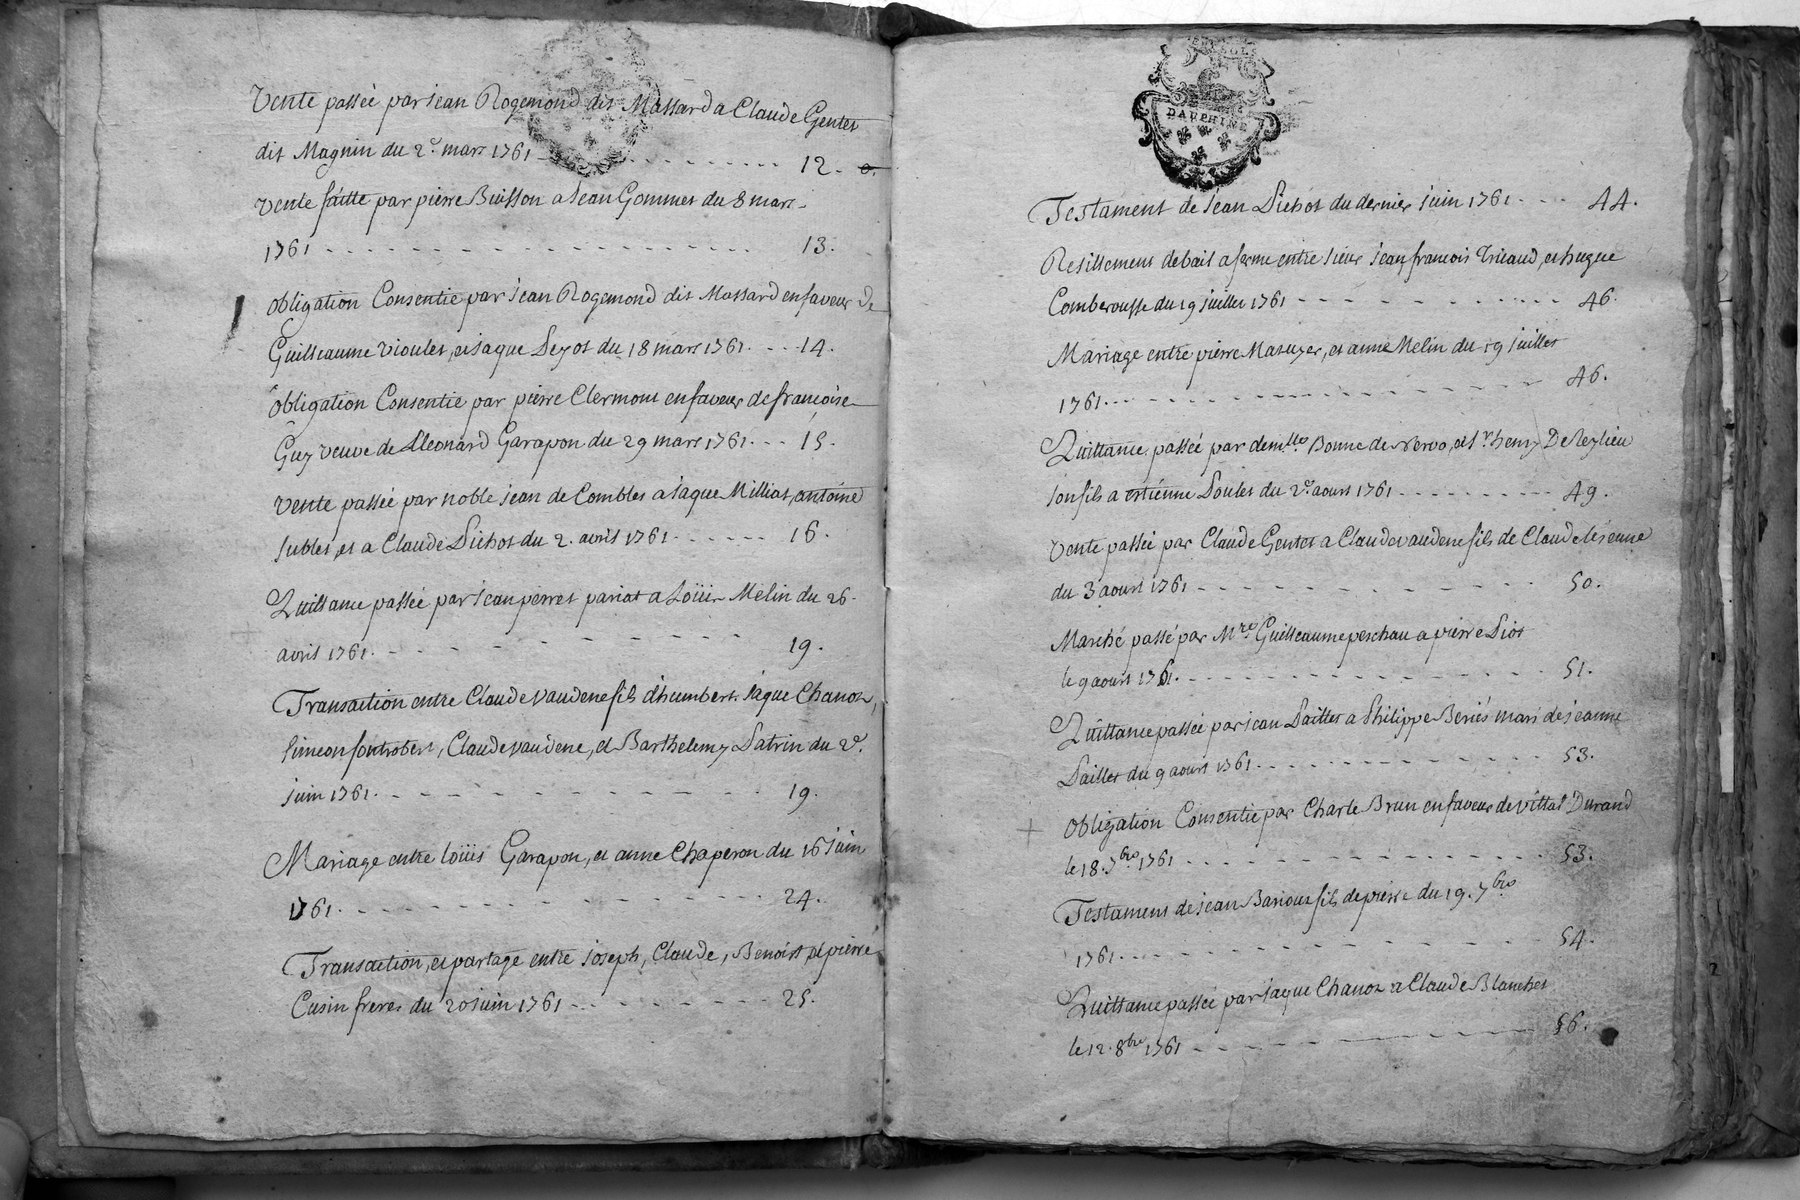 Vente passée par jean Rogemond dit Massard a Claude Gentet
dit Magnin du 2e mars 1761 - - - - - - - 12.
vente faitte par pierre Buisson a Jean Gommet du 8 mars
1761 - - - - - - - - - - - - 13.
obligation Consentie par jean Rogemond dit Massard en faveur de
Guilleaume vioulet, et jaque Deyot du 18 mars 1761. - - - 14.
obligation Consentie par pierre Clermont en faveur de francoise
Guy veuve de Lleonard Garapon du 29 mars 1761. - - - 15.
vente passée par noble jean de Combles a jaque Milliat, antoine
Sublet, et a Claude Dichot du 2. avril 1761 - - - - - - 16.
Quittance passée par jean perret pariat a Loüis Melin du 26
avril 1761. - - - - - - - - - - 19.
Transaction entre Claude vaudene fils d'humbert. jaque Chanoz,
simeon fontrobert, Claude vaudene, et Barthelemy Patrin du 2e.
juin 1761. - - - - - - - - - - 19.
Mariage entre loüis Garapon, et anne Chaperon du 16 juin
1761. - - - - - - - - - - - - 24.
Transaction, et partage entre joseph, Claude, Benoist et pierre
Cusin freres du 20 juin 1761 - - - - - - - - 25.
DAUPHINE
Testament de jean Dichot du dernier juin 1761 - - - - 44.
Resillement de bail a ferme entre sieur jean francois Tricaud, et hugue
Comberousse du 19 juillet 1761 - - - - - - - - - 46.
Mariage entre pierre Masuyer, et anne Melin du 19 juillet
1761. - - - - - - - - - - - - 46.
Quittance passée par demlle Bonne de Nervo, et Sr henry De
son fils a estienne Doulet du 2e aoust 1761 - - - - - - - - 49.
vente passée par Claude Gentet a Claude vaudene fils de Claude le jeune
du 3 aoust 1761 - - - - - - - - - - 50.
Marché passé par Mre Guilleaume perchau a pierre Diot
le 9 aoust 1761. - - - - - - - - - - 51.
Quittance passée par jean Paillet a Philippe Beriés mari de jeanne
Paillet du 9 aoust 1761 - - - - - - - - - - 53.
obligation Consentie par Charle Brun en faveur de vittal Durand
le 18. 7bre 1761 - - - - - - - - - - - 53.
Testament de jean Barioux fils de pierre du 19. 7bre
1761. - - - - - - - - - - - - 54.
Quittance passée par jaque Chanoz a Claude Blanchet
le 12. 8bre 1761 - - - - - - - - - - 56.